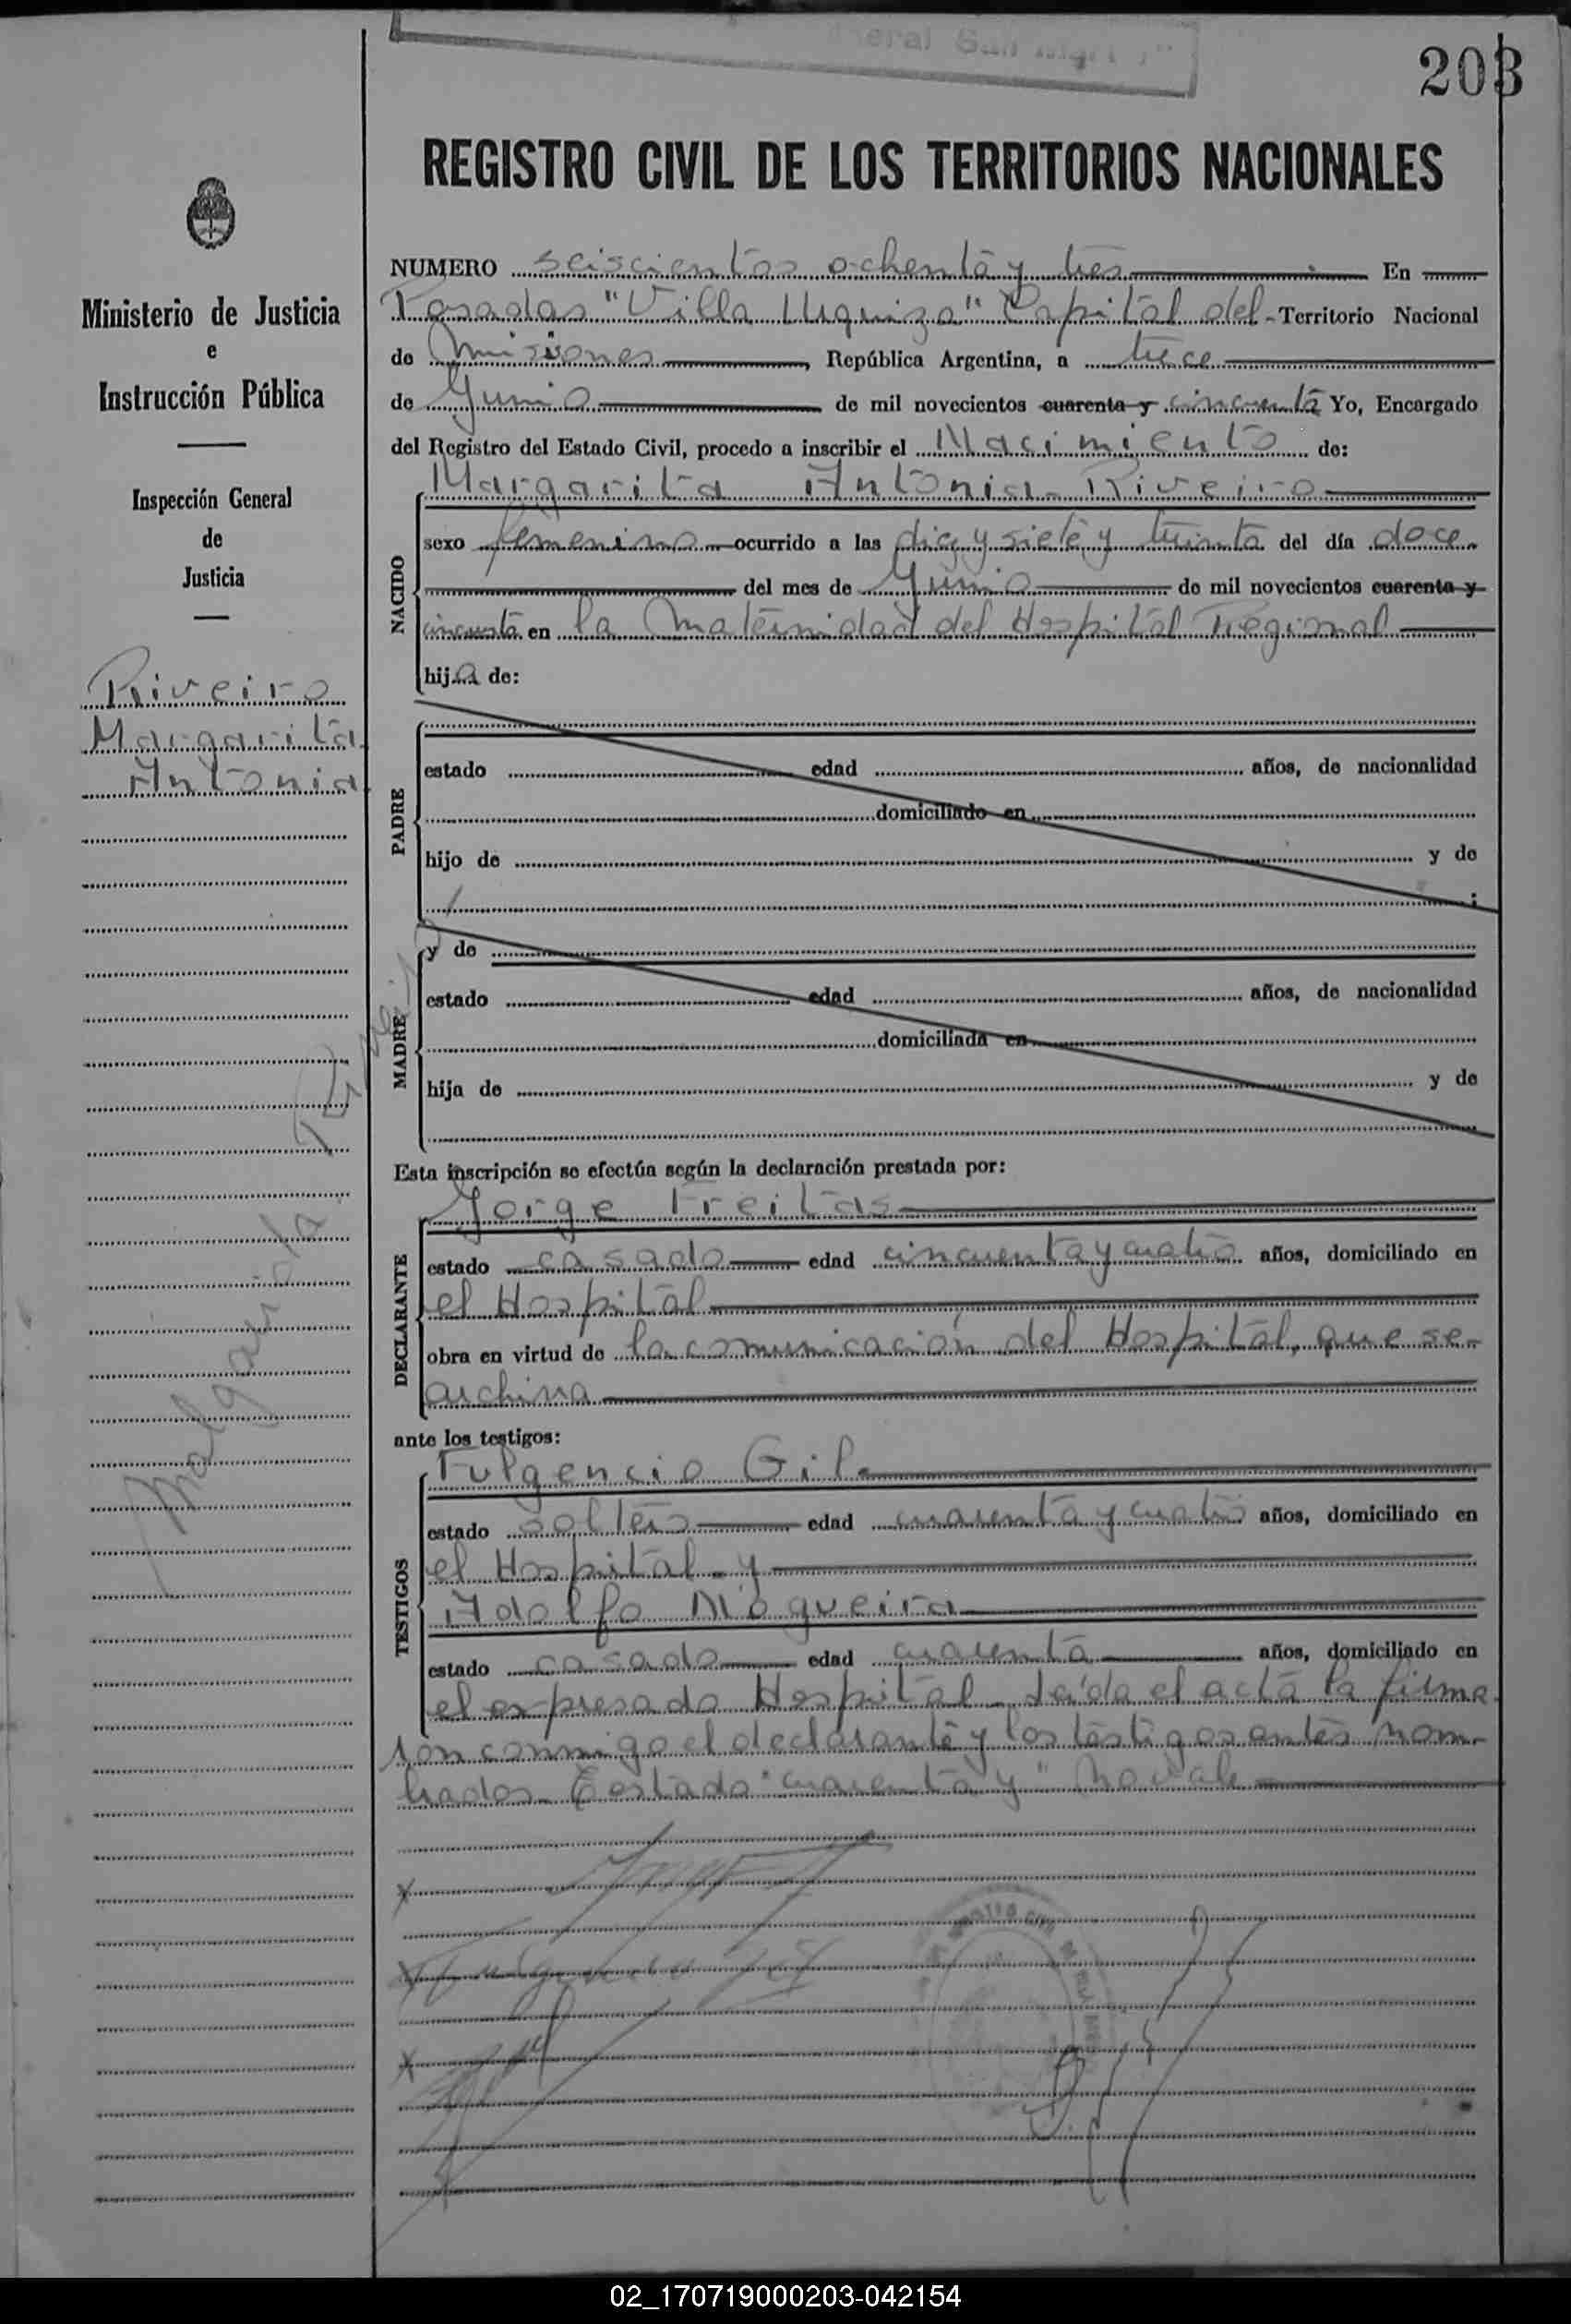 eral San Mig
203
REGISTRO CIVIL DE LOS TERRITORIOS NACIONALES
Ministerio de Justicia
e
Instrucción Pública
Inspección General
de
Justicia
Riveiro
Margarita
Antonia
NUMERO seiscientos ochenta y tres En
Posadas "Villa Urquiza" Capital del Territorio Nacional
de Misiones, República Argentina, a trece
de Junio de mil novecientos cuarenta y cincuenta Yo, Encargado
del Registro del Estado Civil, procedo a inscribir el Nacimiento de:
Margarita Antonia Riveiro
NACIDO
sexo femenino ocurrido a las diez y siete y treinta del día doce
del mes de Junio de mil novecientos cuarenta y
cincuenta en la Maternidad del Hospital Regional
hija de:
PADRE
estado edad años, de nacionalidad
domiciliado en
hijo de y de
;
MADRE
y de
estado edad años, de nacionalidad
domiciliada en
hija de y de
Esta inscripción se efectúa según la declaración prestada por:
Jorge Freitas
DECLARANTE
estado casado edad cincuenta y cuatro años, domiciliado en
el Hospital
obra en virtud de la comunicación del Hospital, que se
archiva
ante los testigos:
Fulgencio Gil
TESTIGOS
estado soltero edad cuarenta y cuatro años, domiciliado en
el Hospital y
Adolfo Nogueira
estado casado edad cuarenta años, domiciliado en
el expresado Hospital. Leída el acta la firma
ron conmigo el declarante y los testigos antes nom-
brados. Testado "cuarenta y" No vale
Fulgencio Gil
Margarita
02_170719000203-042154